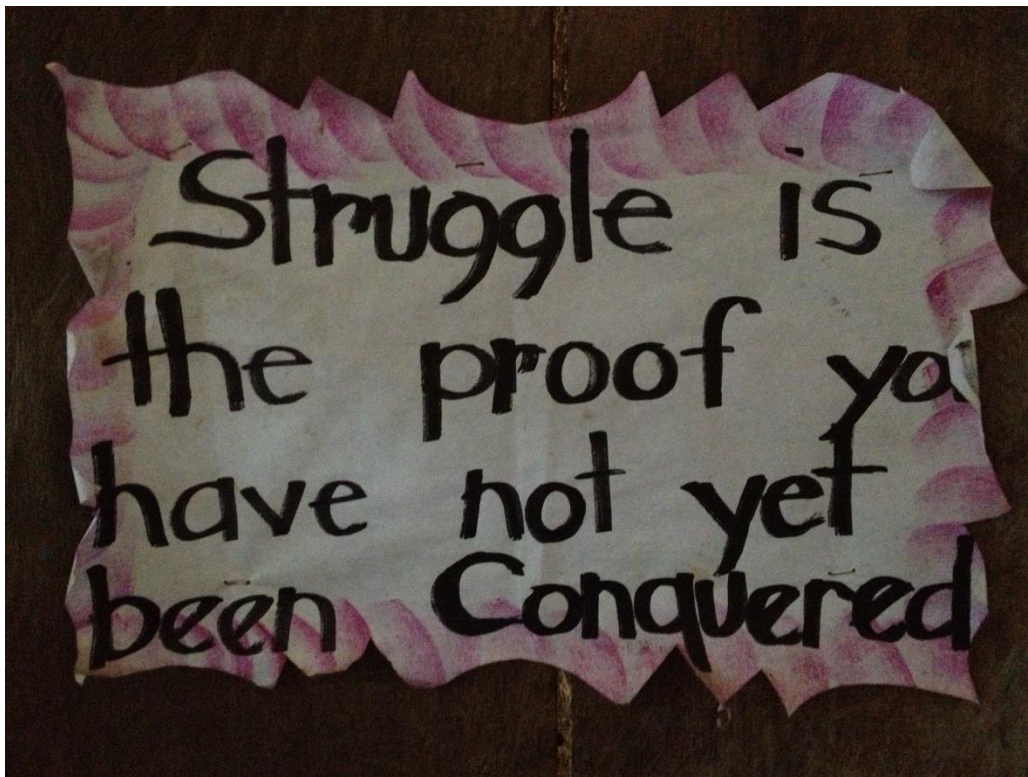 Struggle is
the proof yo
have not yet
been Conquered